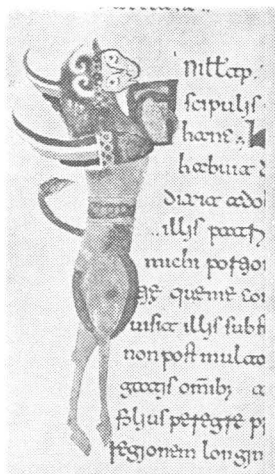 scipulis
hanc. h
habuit d
dixit adol
illis patri
michi portion
que me con
uisit illis subst
non post multo
gatis omib; a
filius peregre pr
regionem longin